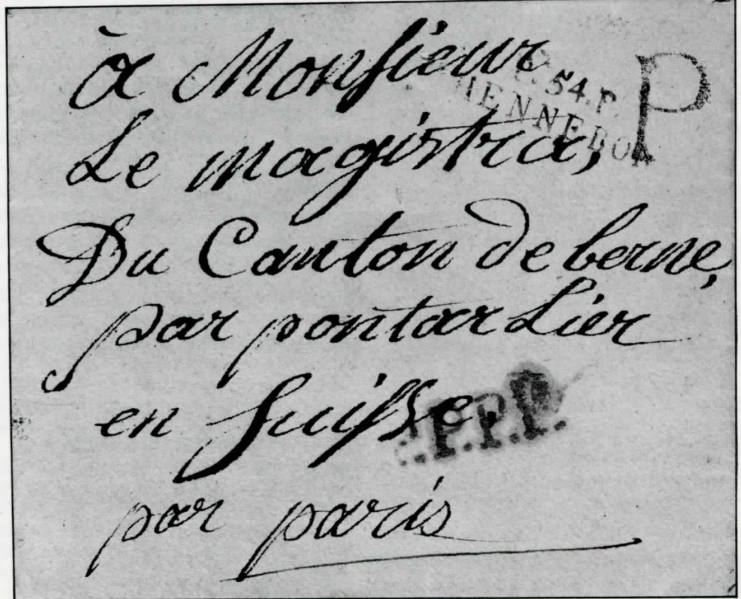 à Monsieur
Le magistra,
Du Canton de berne,
par pontarLier
en suisse,
par paris
54. P.
HENNEBON
P
P.P.P.